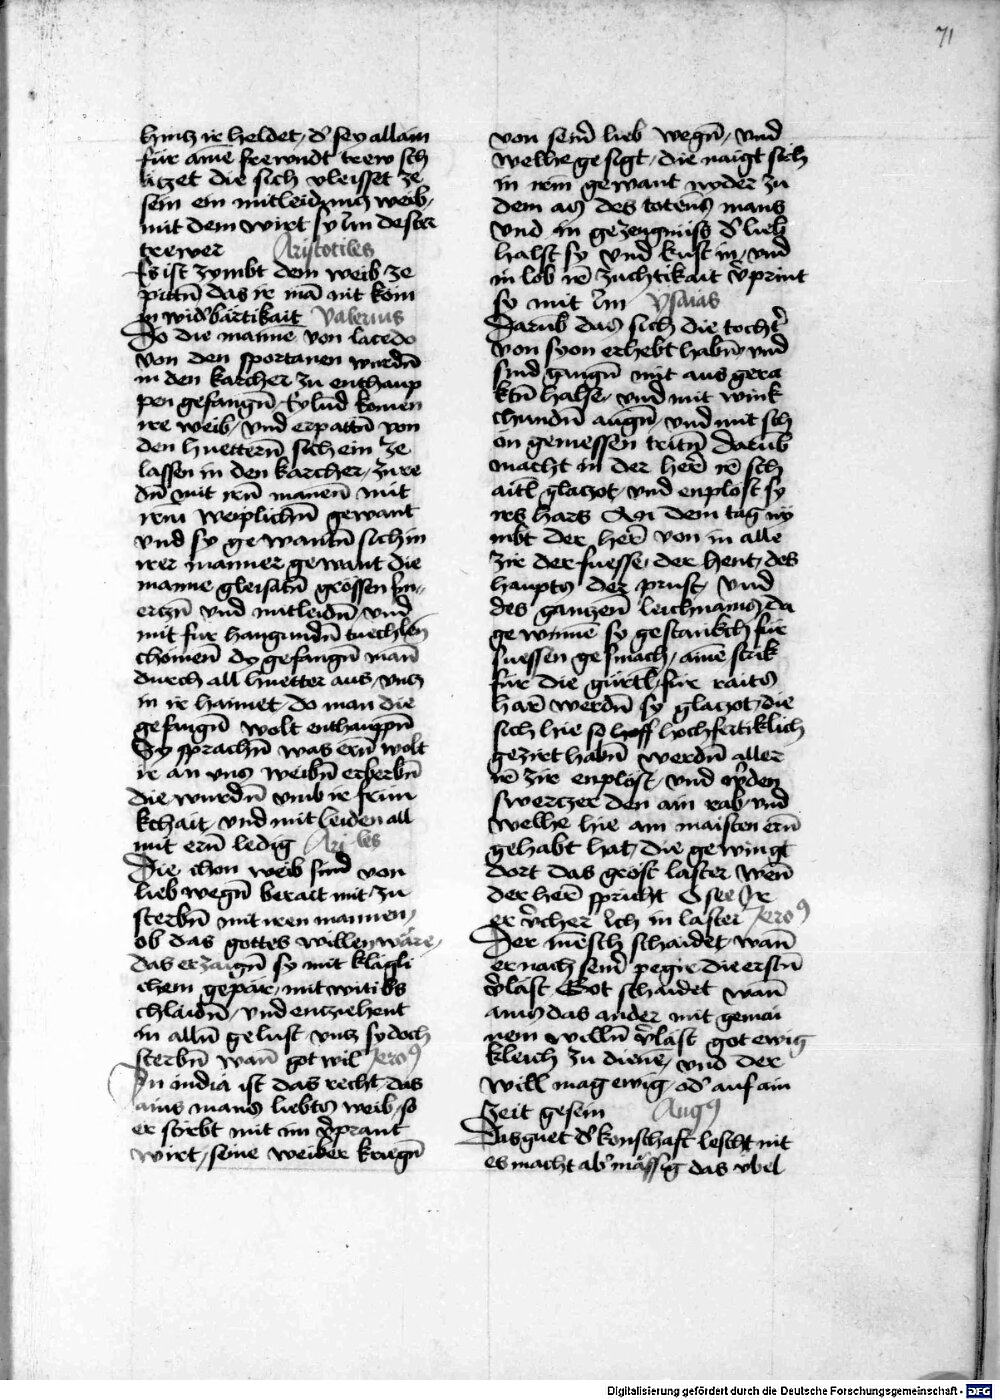 71
hincz ir heldet, d' sey allain
für aine frewndt trew sch
iczet die sich vleisset ze
sein ein mitleidung weib,
mit dem wirt sy im dester
trewer Aristotiles
Es ist zymbt dem weib ze
pittn̄ das ir mā nit kom
in wid'bärtikait Valerius
Do die manne von lacedo
von den sportanen wurdn̄
in den karcher zu enthaup
pen gefangn̄, eylund komen
ire weib, vnd erpattn̄ von
den huettern̄ sich ein ze
lassen in den karcher, zu re
dn̄ mit iren̄ manen̄ mit
irem weiplichn̄ gewant
vnd sy gewantn̄ sich in
irer manner gewant die
manne gleisatn̄ grossen sm
erczn̄ vnd mitleidn̄, vnd
mit für hangundn̄ tuechlen̄
chomen̄ dy gefangn̄ man̄
durch all huetter aus, vncz
in ir haimet, do man die
gefangn̄ wolt enthaupn̄
Sy sprachn̄ was ern̄ wolt
ir an vns weibn̄ erberbn̄
die wurdn̄ vmb ir frün
kchait, vnd mit leiden all
mit ern̄ ledig Ari les
Die chon weib sind von
lieb wegn̄ berait mit zu
sterbn̄ mit iren mannen,
ob das gottes willen wäre,
das erzaign̄ sy mit klägli
chem gepär, mit witibs
chlaidn̄, vnd encziehent
in alln̄ gelust, vncz sy doch
sterbn̄ wan̄ got wil Jero9
In india ist das recht, das
ains mans liebts weib, so
er stirbt mit im v'prant
wirt, seine weiber kriegn̄
von seinē lieb wegn̄, vnd
welhe gesigt, die naigt sich
in irem gewant nyder zu
dem as des totens mans
vnd in gezengniss d' lieb
halst sy vnd kust in, vnd
in lob ir̄ züchtikait v'print
sy mit im ysaias
Darūb das sich die tocht'
von syon erhebt habn̄, vnd
sind gangn̄ mit aus gera
ktn̄ halse, vnd mit wink
chundn̄ augn̄, vnd mit sch
ön gemessen tritn̄ darūb
macht in der her̄ ir̄ sch
aitl glaczot, vnd enplöst sy
irs hars An dem tag ny
mbt der her̄ von in alle
zir der fuesse, der hent, des
haupts der prust, vnd
des ganzen̄ leichnams, da
gewinnē sy gestankch für
suessen gesmach, aine strik
für die gürtl, für raits
har̄ werdn̄ sy glaczot, die
sich hie so hoff hochfertiklich
geziert habn̄ werdn̄ aller
ir̄ zir enplöst, vnd w'den
swerczer den ain rab, vnd
welhe hie am maisten ern̄
gehabt hat, die gewingt
dort das gröst laster wen̄
der her̄ spricht O see Ir
er v'cher Ich in laster Jero9
Der mēsch schaidet, wan̄
er nach seinē pegir die erstn̄
v'last Got schaidet wan̄
ains das ander mit gemai
nem willn̄ v'last got ewig
kleich zu dienē, vnd der
will mag ewig, od' auf ain
zeit gesein Aug9
Das guet d' konschaft lescht nit
es macht ab' mässig das vbel
Digitalisierung gefördert durch die Deutsche Forschungsgemeinschaft - DFG